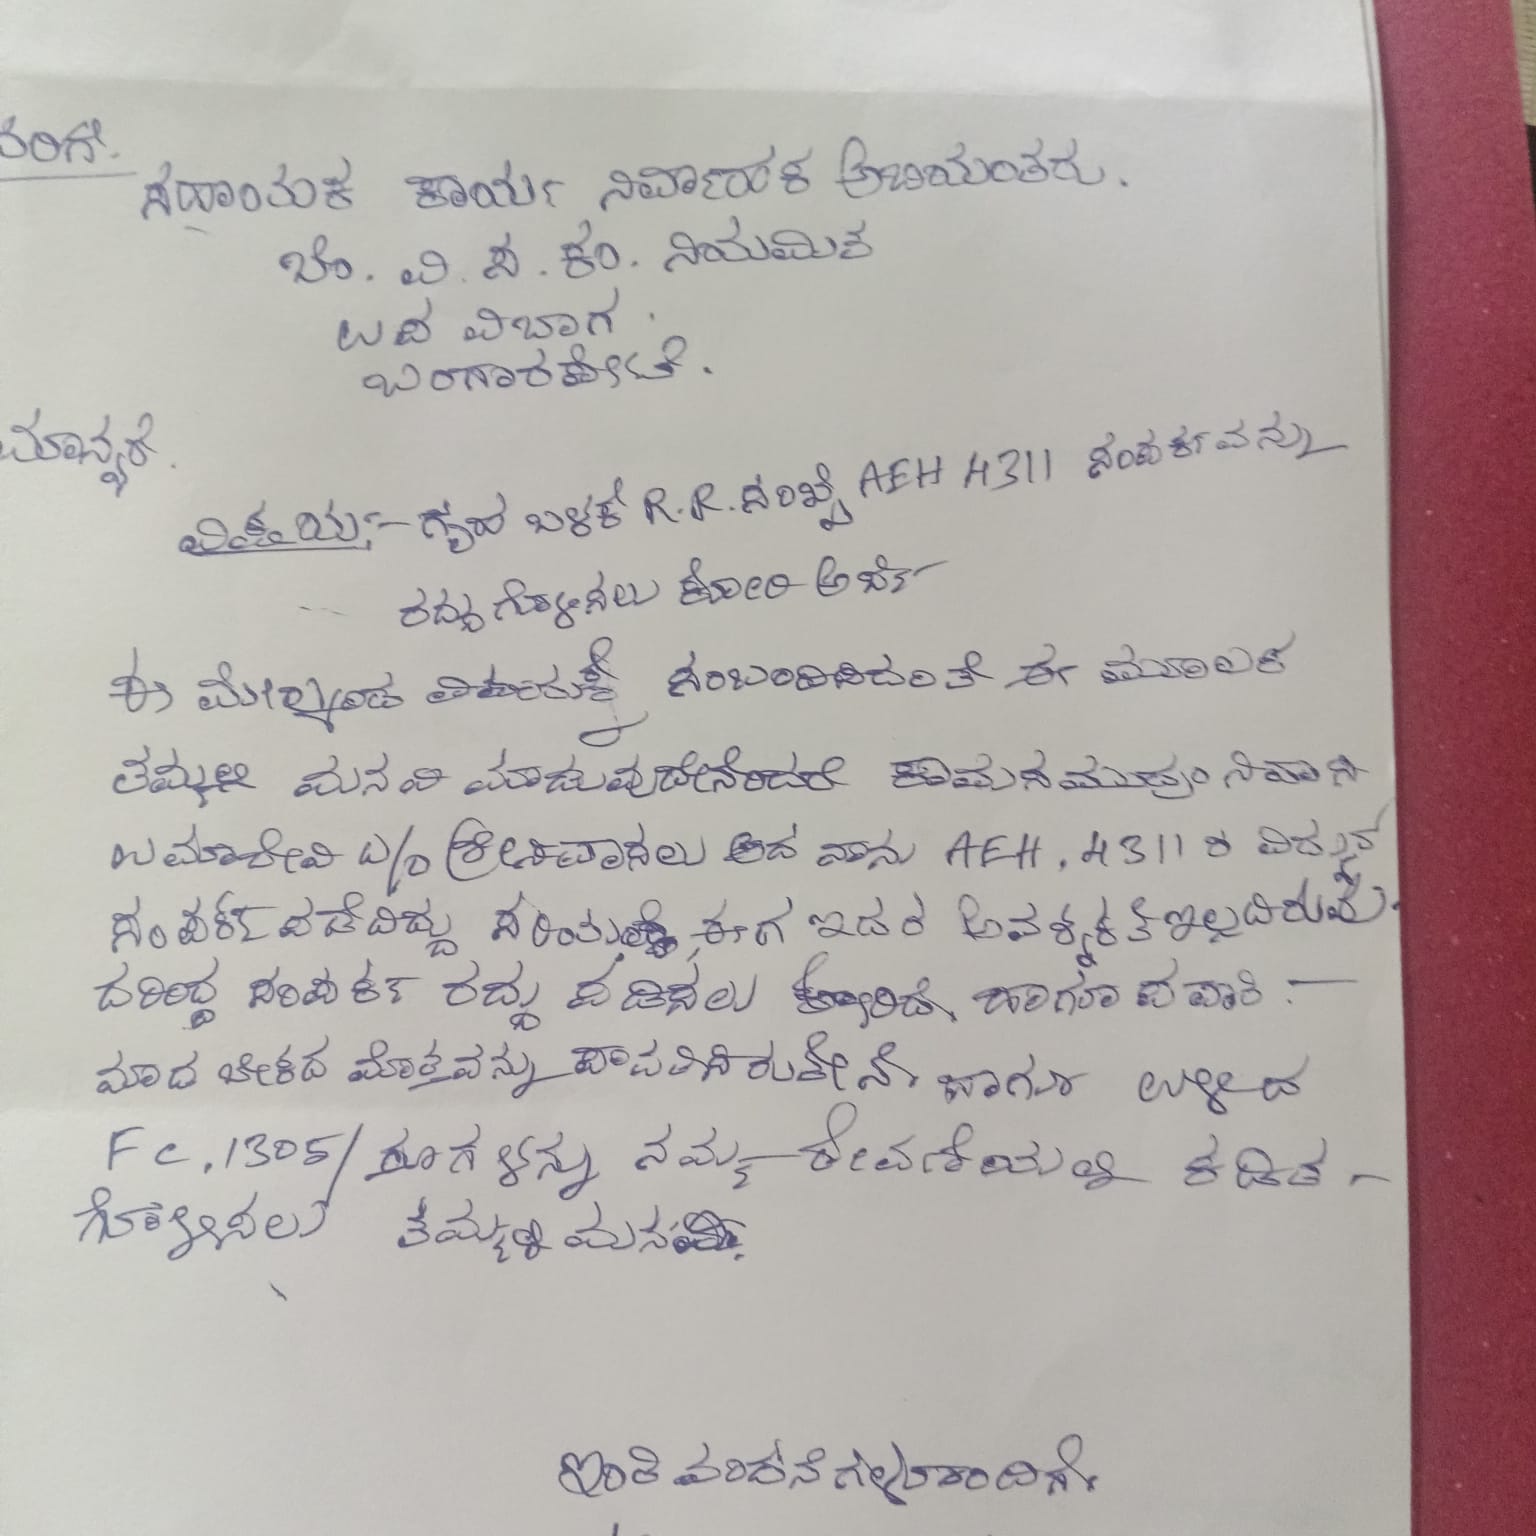 ರಿಗೆ.
ಸಹಾಯಕ ಕಾರ್ಯ ನಿರ್ವಾಹಕ ಅಬಿಯಂತರು.
ಬೆಂ. ವಿ. ಸ. ಕಂ. ನಿಯಮಿತ
ಉಪ ವಿಬಾಗ.
ಬಂಗಾರಪೇಟೆ.
ಮಾನ್ಯರೆ.
ವಿಷಯ:- ಗೃಹ ಬಳಕೆ R.R. ಸಂಖ್ಯೆ AEH 4311 ಸಂಪರ್ಕವನ್ನು
ರದ್ದುಗೊಳಿಸಲು ಕೋರಿ ಅರ್ಜಿ
ಈ ಮೇಲ್ಕಂಡ ವಿಷಯಕ್ಕೆ ಸಂಬಂದಿಸಿದಂತೆ ಈ ಮೂಲಕ
ತಮ್ಮಲ್ಲಿ ಮನವಿ ಮಾಡುವುದೇನೆಂದರೆ ಕಾಮಸಮುದ್ರಂ ನಿವಾಸಿ
ಉಮಾದೇವಿ ಶ್ರೀನಿವಾಸಲು ಆದ ನಾನು AEH. 4311 ರ ವಿದ್ಯುತ್
ಸಂಪರ್ಕ ಪಡೆದಿದ್ದು ಸರಿಯಷ್ಟೆ, ಈಗ ಇದರ ಅವಶ್ಯಕತೆ ಇಲ್ಲದಿರುವು-
ದರಿಂದ್ದ ಸಂಪರ್ಕ ರದ್ದು ಪಡಿಸಲು ಕೋರಿದೆ, ಹಾಗೂ ಪಾವತಿ -
ಮಾಡ ಬೇಕದ ಮೊತ್ತವನ್ನು ಪಾವತಿಸಿರುತ್ತೇನೆ ಹಾಗೂ ಉಳಿದ
Fc. 1305/ ರೂಗಳನ್ನು ನಮ್ಮ ಠೇವಣಿಯಲ್ಲಿ ಕಡಿತ -
ಗೊಳಿಸಲು ತಮ್ಮಲ್ಲಿ ಮನವಿ.
ಇಂತಿ ವಂದನೆಗಳೊಂದಿಗೆ